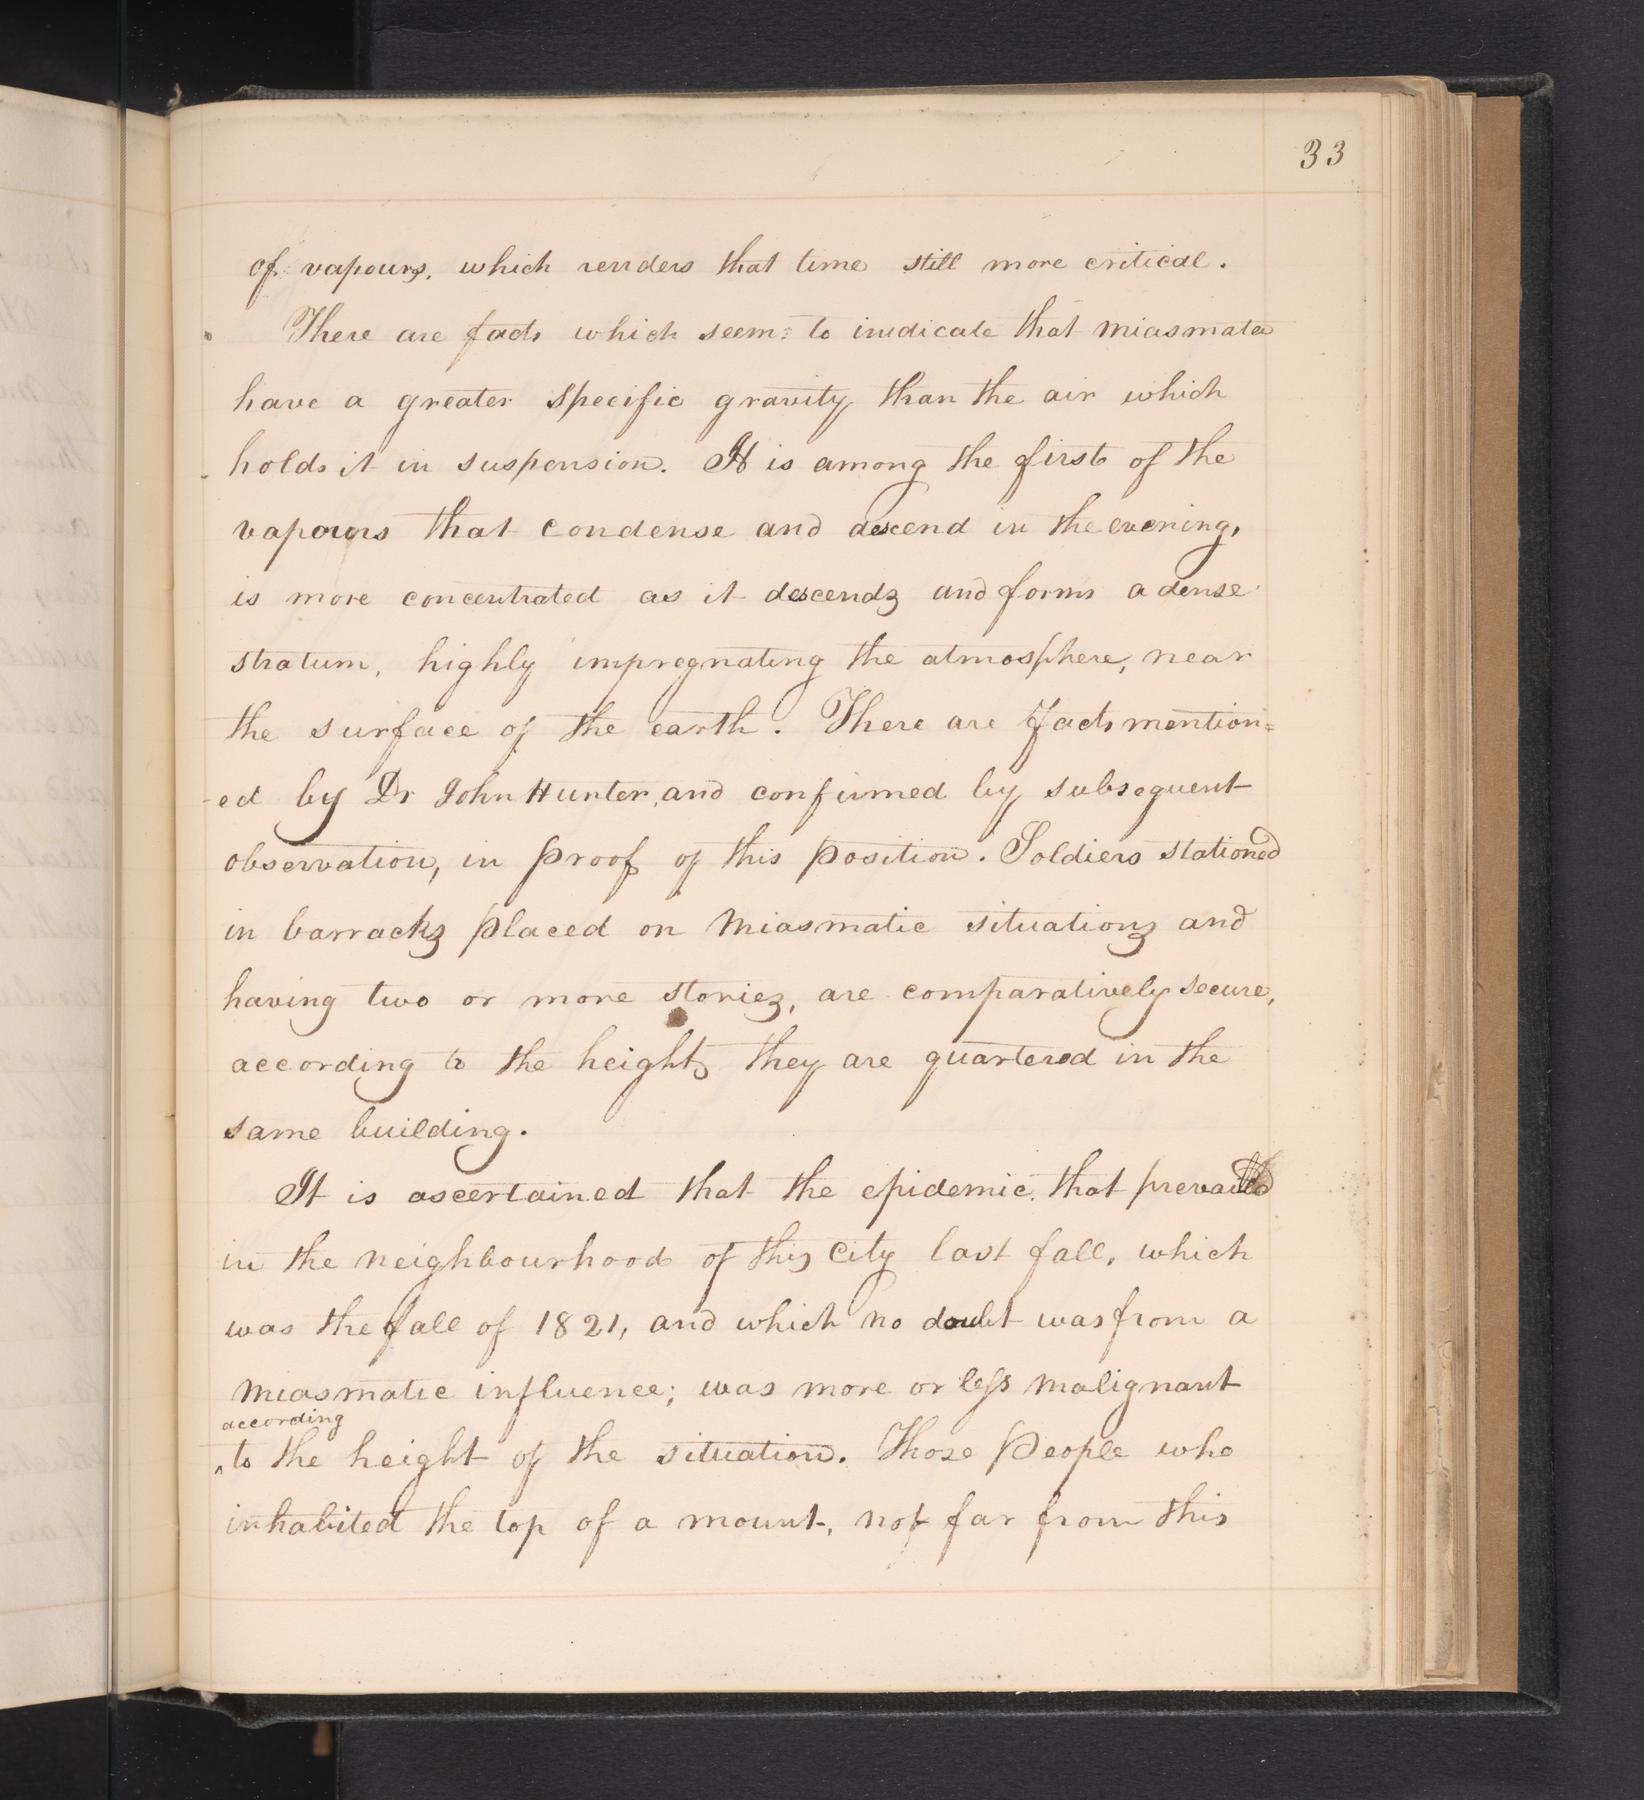 33
of vapours, which renders that time still more critical.
There are facts which seem to indicate that miasmata
have a greater specific gravity than the air which
holds it in suspension. It is among the first of the
vapours that condense and descend in the evening,
is more concentrated as it descends and forms a dense
stratum, highly impregnating the atmosphere, near
the surface of the earth. There are facts mention=
-ed by Dr John Hunter, and confirmed by subsequent
observation, in proof of this position. Soldiers stationed
in barracks placed on Miasmatic situations and
having two or more stories, are comparatively secure,
according to the heights they are quartered in the
same building.
It is ascertained that the epidemic that prevailed
in the neighbourhood of this City last fall, which
was the fall of 1821, and which no doubt was from a
Miasmatic influence; was more or less malignant
according
^ to the height of the situation. Those People who
inhabited the top of a mount, not far from this